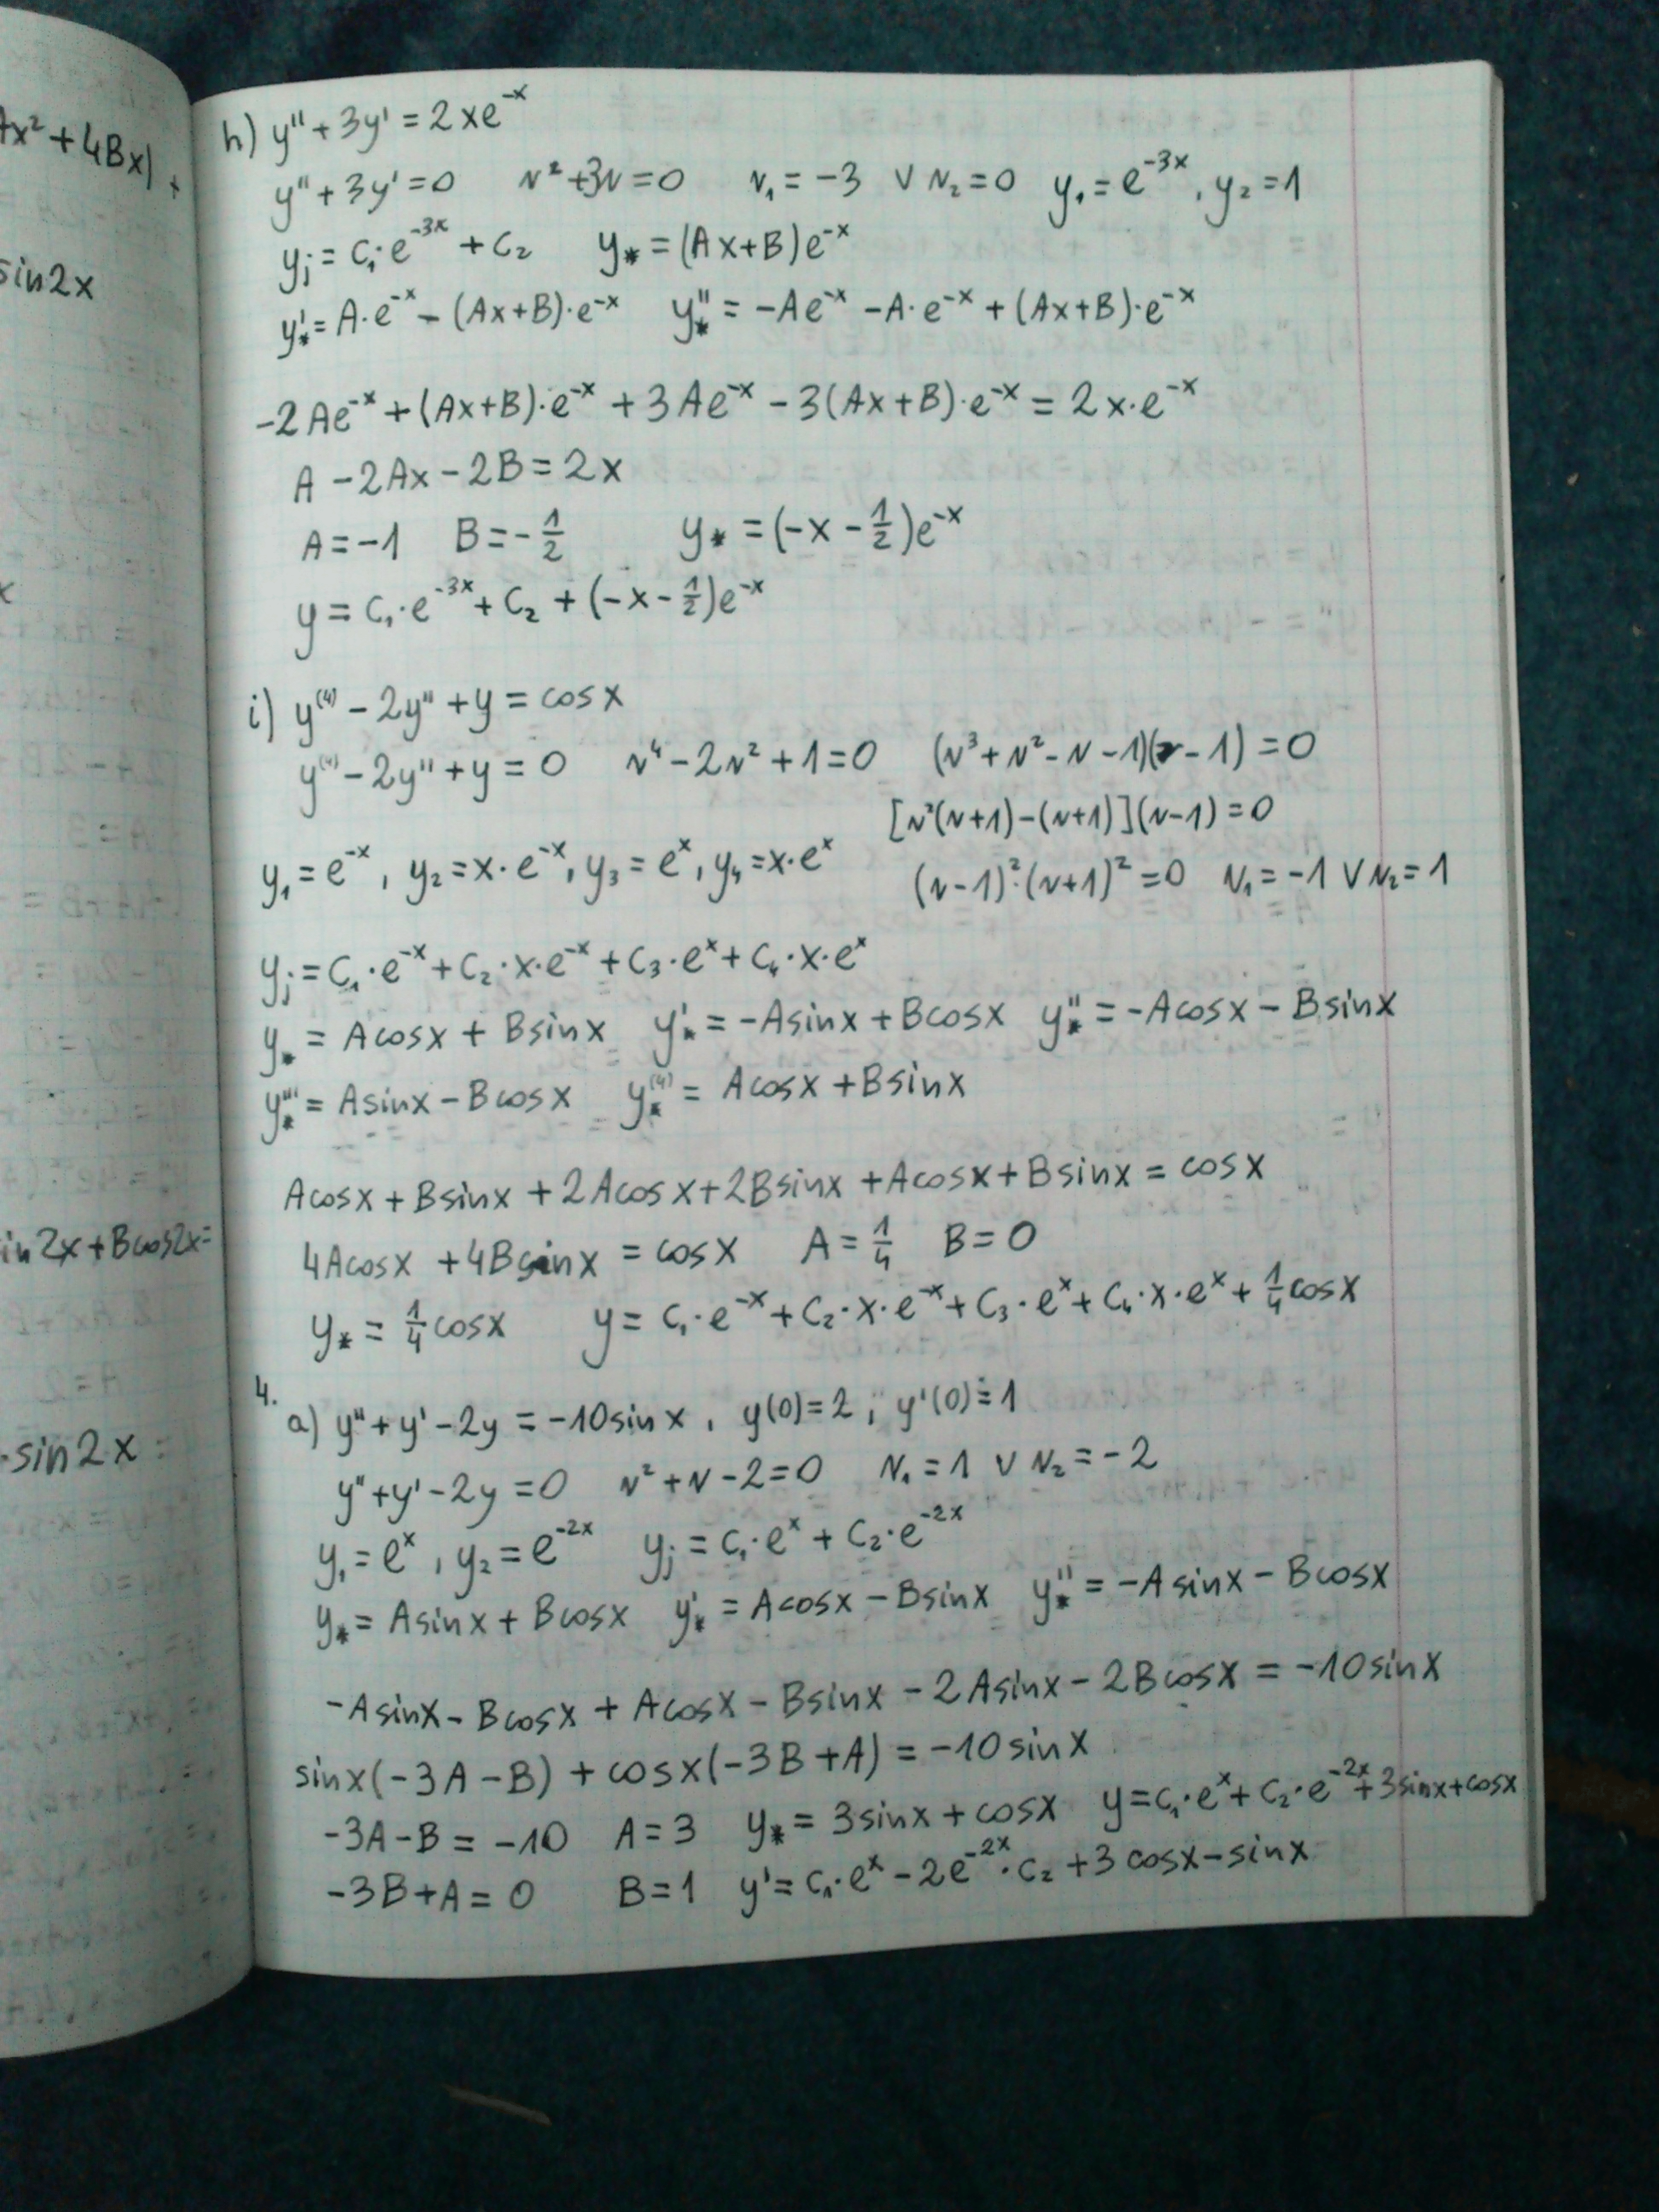 Ax² + 4Bx) +
sin2x
x
in 2x + Bcos2x =
· sin 2x =
h) y'' + 3y' = 2xe⁻ˣ
y'' + 3y' = 0 r² + 3r = 0 r₁ = -3 ∨ r₂ = 0 y₁ = e⁻³ˣ, y₂ = 1
yⱼ = C₁·e⁻³ˣ + C₂ y* = (Ax+B)e⁻ˣ
y*' = A·e⁻ˣ - (Ax+B)·e⁻ˣ y*'' = -Ae⁻ˣ - A·e⁻ˣ + (Ax+B)·e⁻ˣ
-2Ae⁻ˣ + (Ax+B)·e⁻ˣ + 3Ae⁻ˣ - 3(Ax+B)·e⁻ˣ = 2x·e⁻ˣ
A - 2Ax - 2B = 2x
A = -1 B = -1/2 y* = (-x - 1/2)e⁻ˣ
y = C₁·e⁻³ˣ + C₂ + (-x - 1/2)e⁻ˣ
i) y⁽⁴⁾ - 2y'' + y = cosx
y⁽⁴⁾ - 2y'' + y = 0 r⁴ - 2r² + 1 = 0 (r³ + r² - r - 1)(r - 1) = 0
[r²(r+1) - (r+1)](r-1) = 0
y₁ = e⁻ˣ, y₂ = x·e⁻ˣ, y₃ = eˣ, y₄ = x·eˣ (r-1)²·(r+1)² = 0 r₁ = -1 ∨ r₂ = 1
yⱼ = C₁·e⁻ˣ + C₂·x·e⁻ˣ + C₃·eˣ + C₄·x·eˣ
y* = Acosx + Bsinx y*' = -Asinx + Bcosx y*'' = -Acosx - Bsinx
y*''' = Asinx - Bcosx y*⁽⁴⁾ = Acosx + Bsinx
Acosx + Bsinx + 2Acosx + 2Bsinx + Acosx + Bsinx = cosx
4Acosx + 4Bsinx = cosx A = 1/4 B = 0
y* = 1/4 cosx y = C₁·e⁻ˣ + C₂·x·e⁻ˣ + C₃·eˣ + C₄·x·eˣ + 1/4 cosx
4.
a) y'' + y' - 2y = -10sinx, y(0) = 2; y'(0) = 1
y'' + y' - 2y = 0 r² + r - 2 = 0 r₁ = 1 ∨ r₂ = -2
y₁ = eˣ, y₂ = e⁻²ˣ yⱼ = C₁·eˣ + C₂·e⁻²ˣ
y* = Asinx + Bcosx y*' = Acosx - Bsinx y*'' = -Asinx - Bcosx
-Asinx - Bcosx + Acosx - Bsinx - 2Asinx - 2Bcosx = -10sinx
sinx(-3A - B) + cosx(-3B + A) = -10sinx
-3A - B = -10 A = 3 y* = 3sinx + cosx y = C₁·eˣ + C₂·e⁻²ˣ + 3sinx + cosx
-3B + A = 0 B = 1 y' = C₁·eˣ - 2e⁻²ˣ·C₂ + 3cosx - sinx